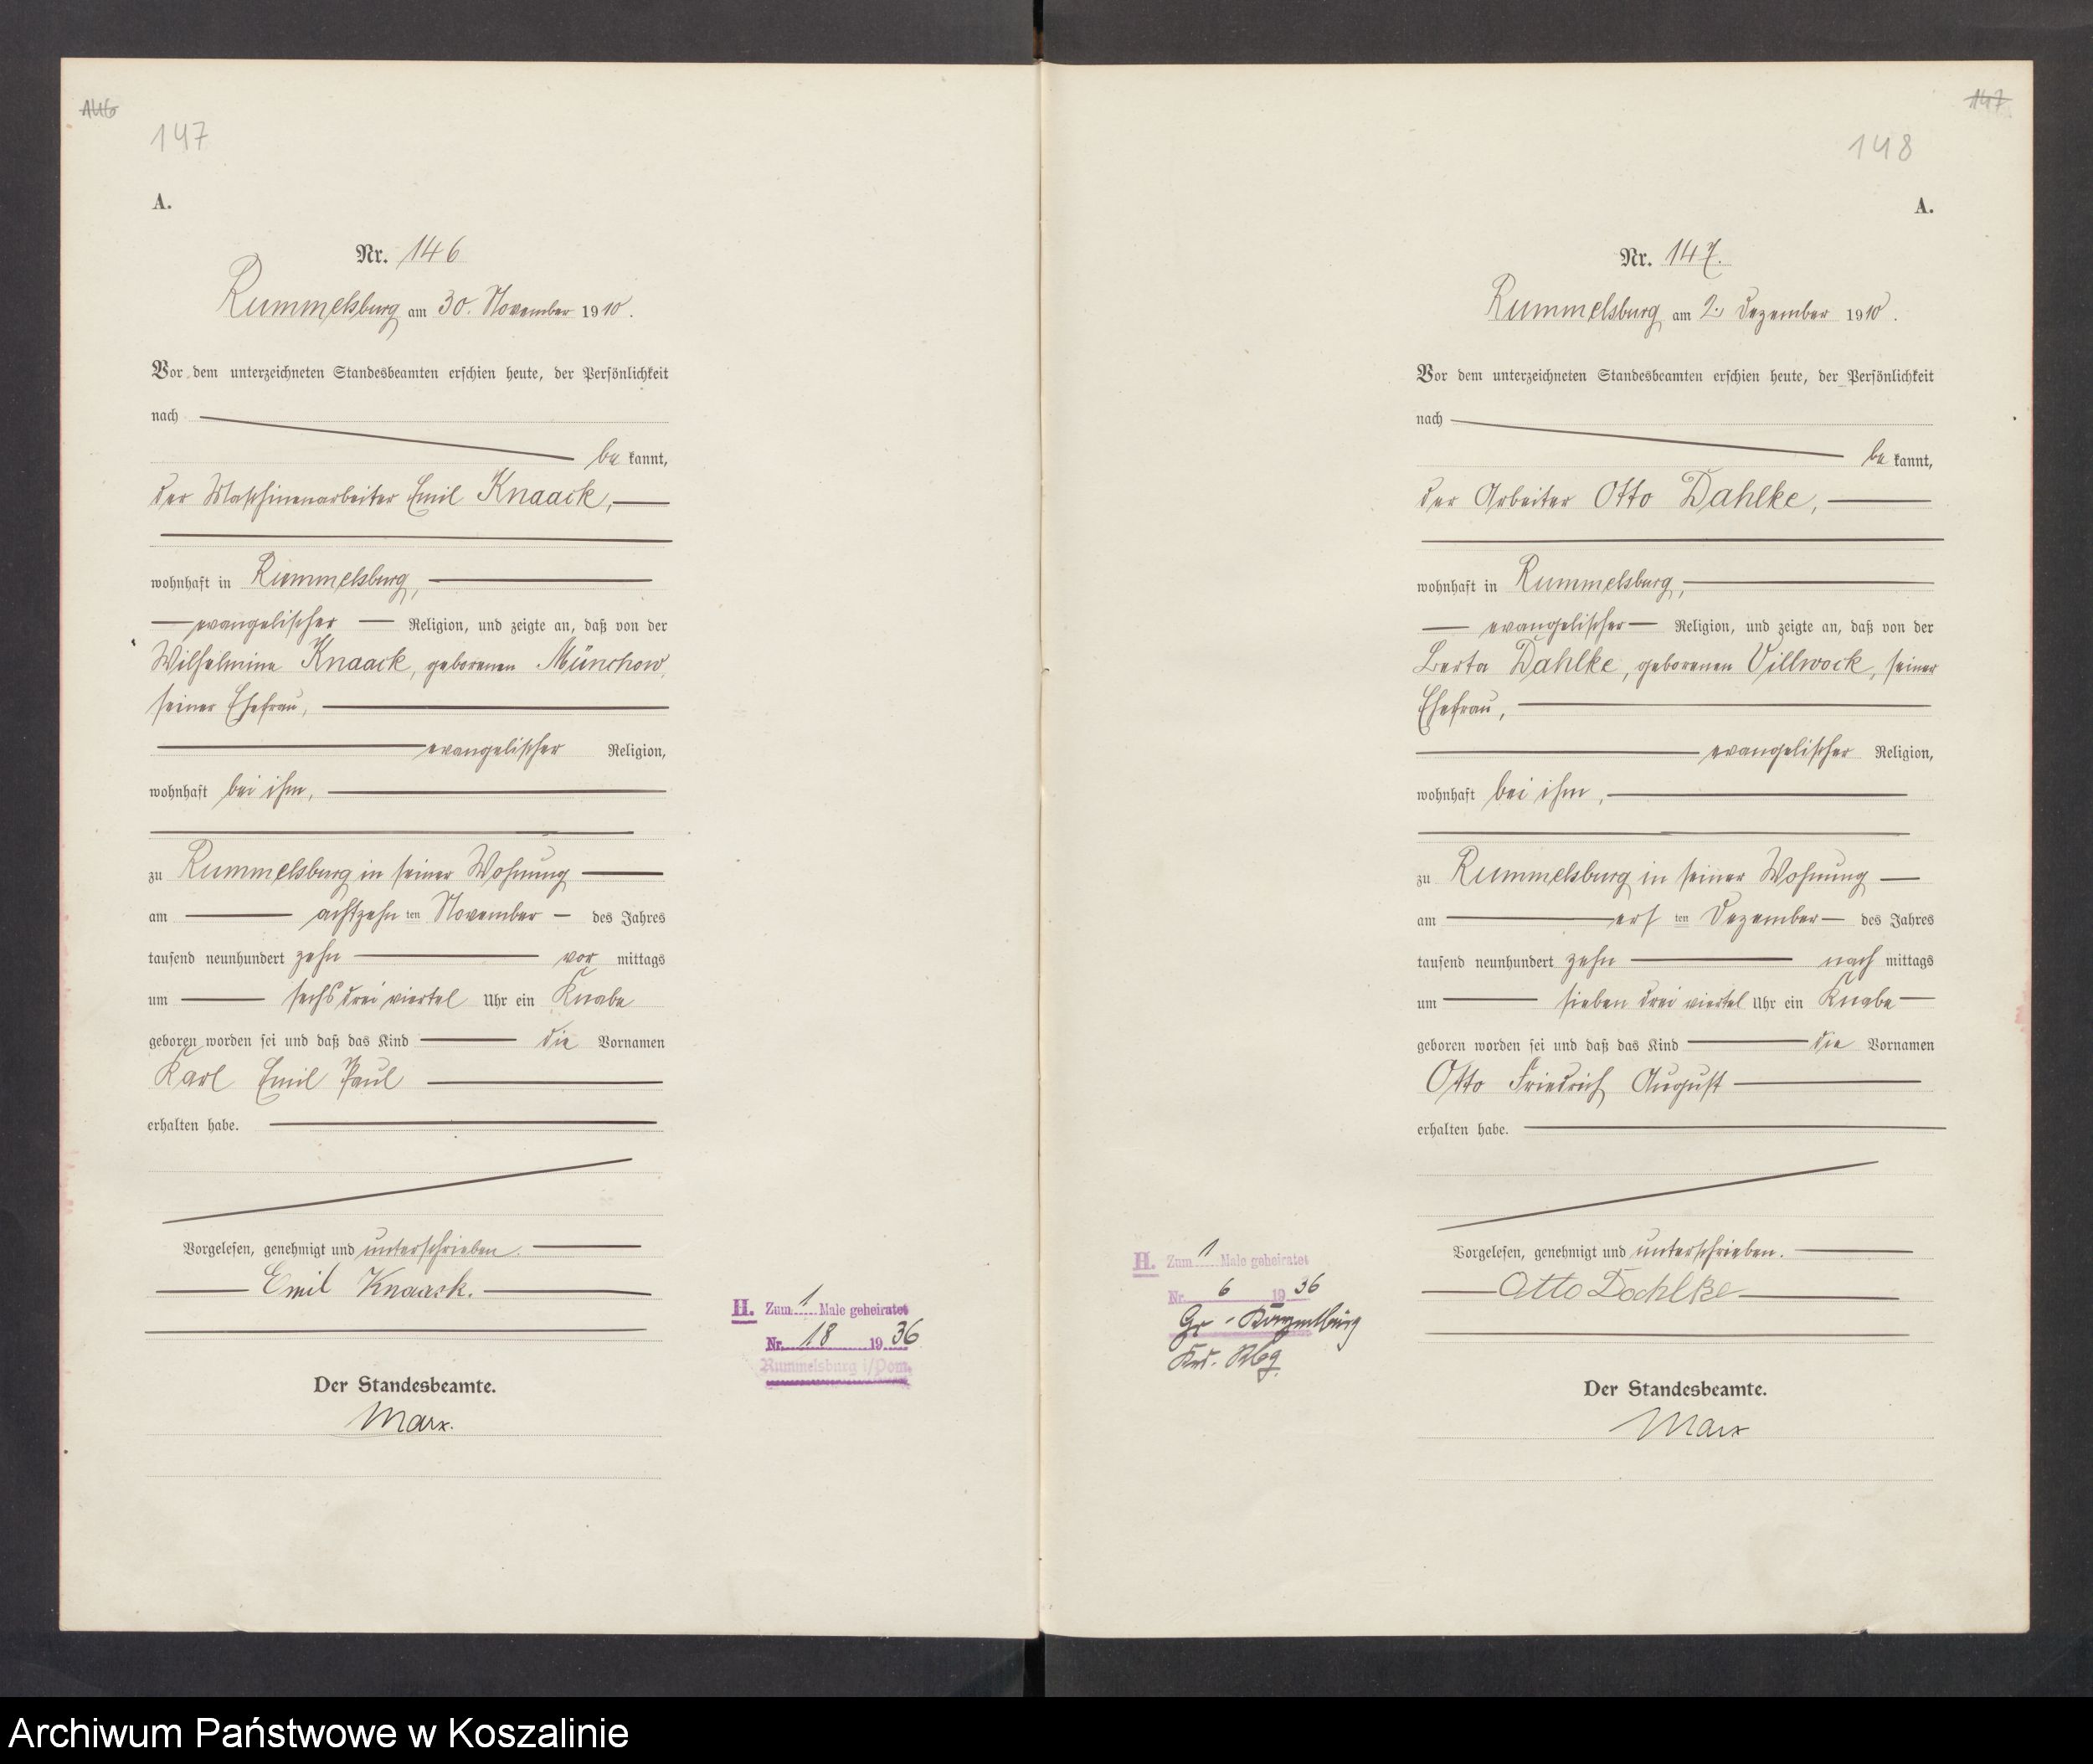 146
147
A.
Nr. 146
Rummelsburg am 30. November 1910.
Vor dem unterzeichneten Standesbeamten erschien heute, der Persönlichkeit
nach
bekannt,
der Maschinenarbeiter Emil Knaack,
wohnhaft in Rummelsburg,
evangelischer Religion, und zeigte an, daß von der
Wilhelmine Knaack, geborenen Münchow,
seiner Ehefrau,
evangelischer Religion,
wohnhaft bei ihm,
zu Rummelsburg in seiner Wohnung
am achtzehnten November des Jahres
tausend neunhundert zehn vor mittags
um sechs drei viertel Uhr ein Knabe
geboren worden sei und daß das Kind die Vornamen
Karl Emil Paul
erhalten habe.
Vorgelesen, genehmigt und unterschrieben.
Emil Knaack.
Der Standesbeamte.
Marx.
H. Zum 1 Male geheiratet
Nr. 18 1936
Rummelsburg i/Pom.
147
148
A.
Nr. 147.
Rummelsburg am 2. Dezember 1910.
Vor dem unterzeichneten Standesbeamten erschien heute, der Persönlichkeit
nach
bekannt,
der Arbeiter Otto Dahlke,
wohnhaft in Rummelsburg,
evangelischer Religion, und zeigte an, daß von der
Berta Dahlke, geborenen Villwock, seiner
Ehefrau,
evangelischer Religion,
wohnhaft bei ihm,
zu Rummelsburg in seiner Wohnung
am ersten Dezember des Jahres
tausend neunhundert zehn nach mittags
um sieben drei viertel Uhr ein Knabe
geboren worden sei und daß das Kind die Vornamen
Otto Friedrich August
erhalten habe.
Vorgelesen, genehmigt und unterschrieben.
Otto Dahlke
Der Standesbeamte.
Marx
H. Zum 1 Male geheiratet
Nr. 6 1936
Gr.
Rbg.
Archiwum Państwowe w Koszalinie